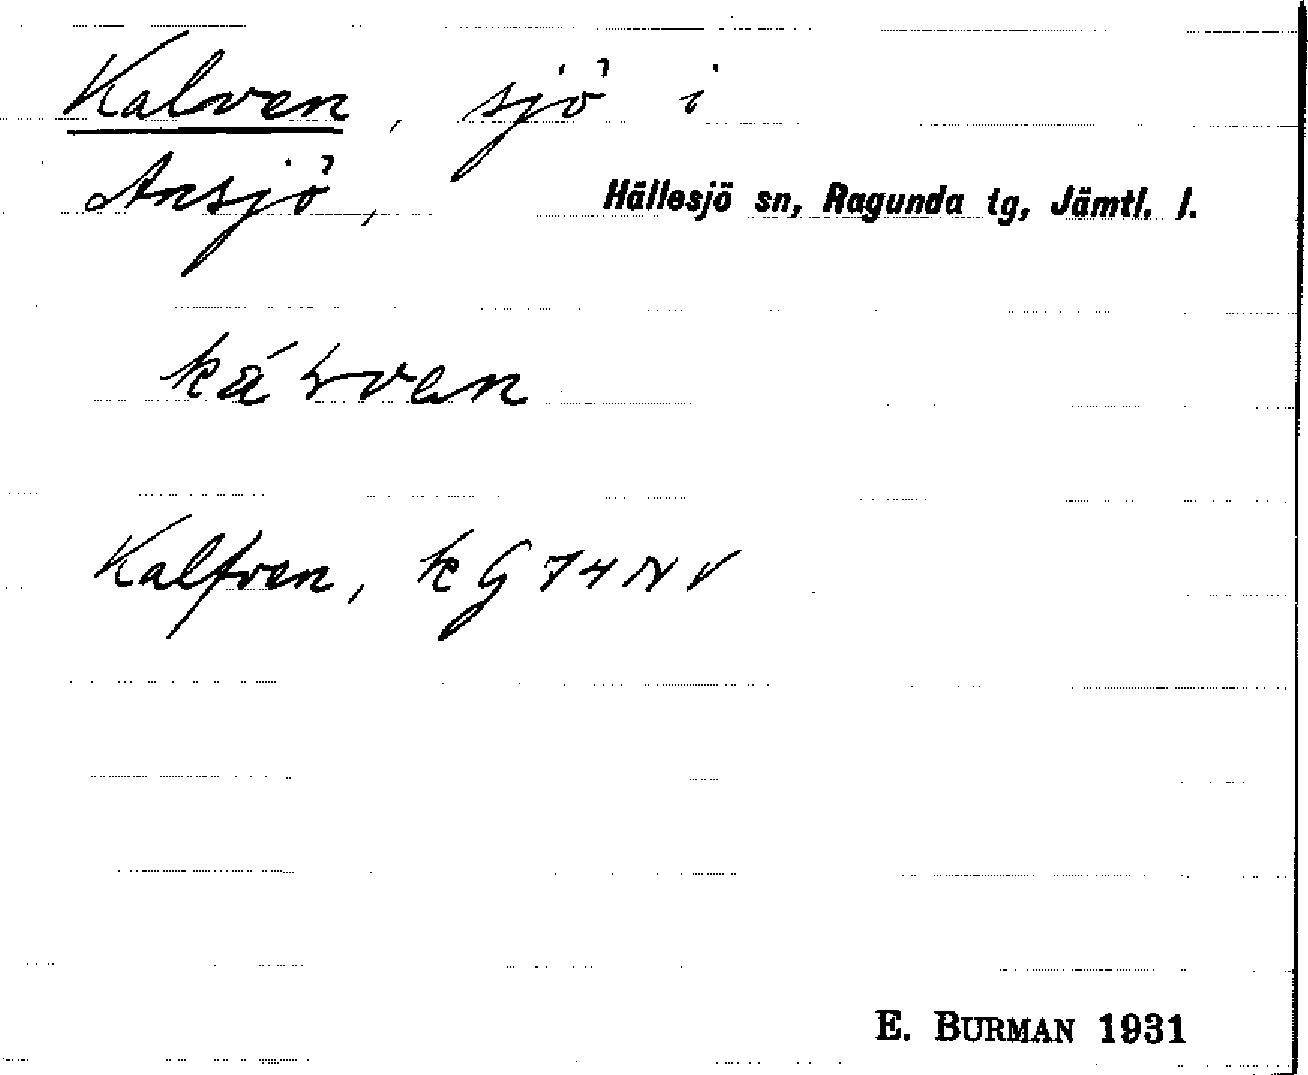 Kalven, sjö i
Ansjö, Hällesjö sn, Ragunda tg, Jämtl. l.
Kalfven, kG 74 NV
E. BURMAN 1931